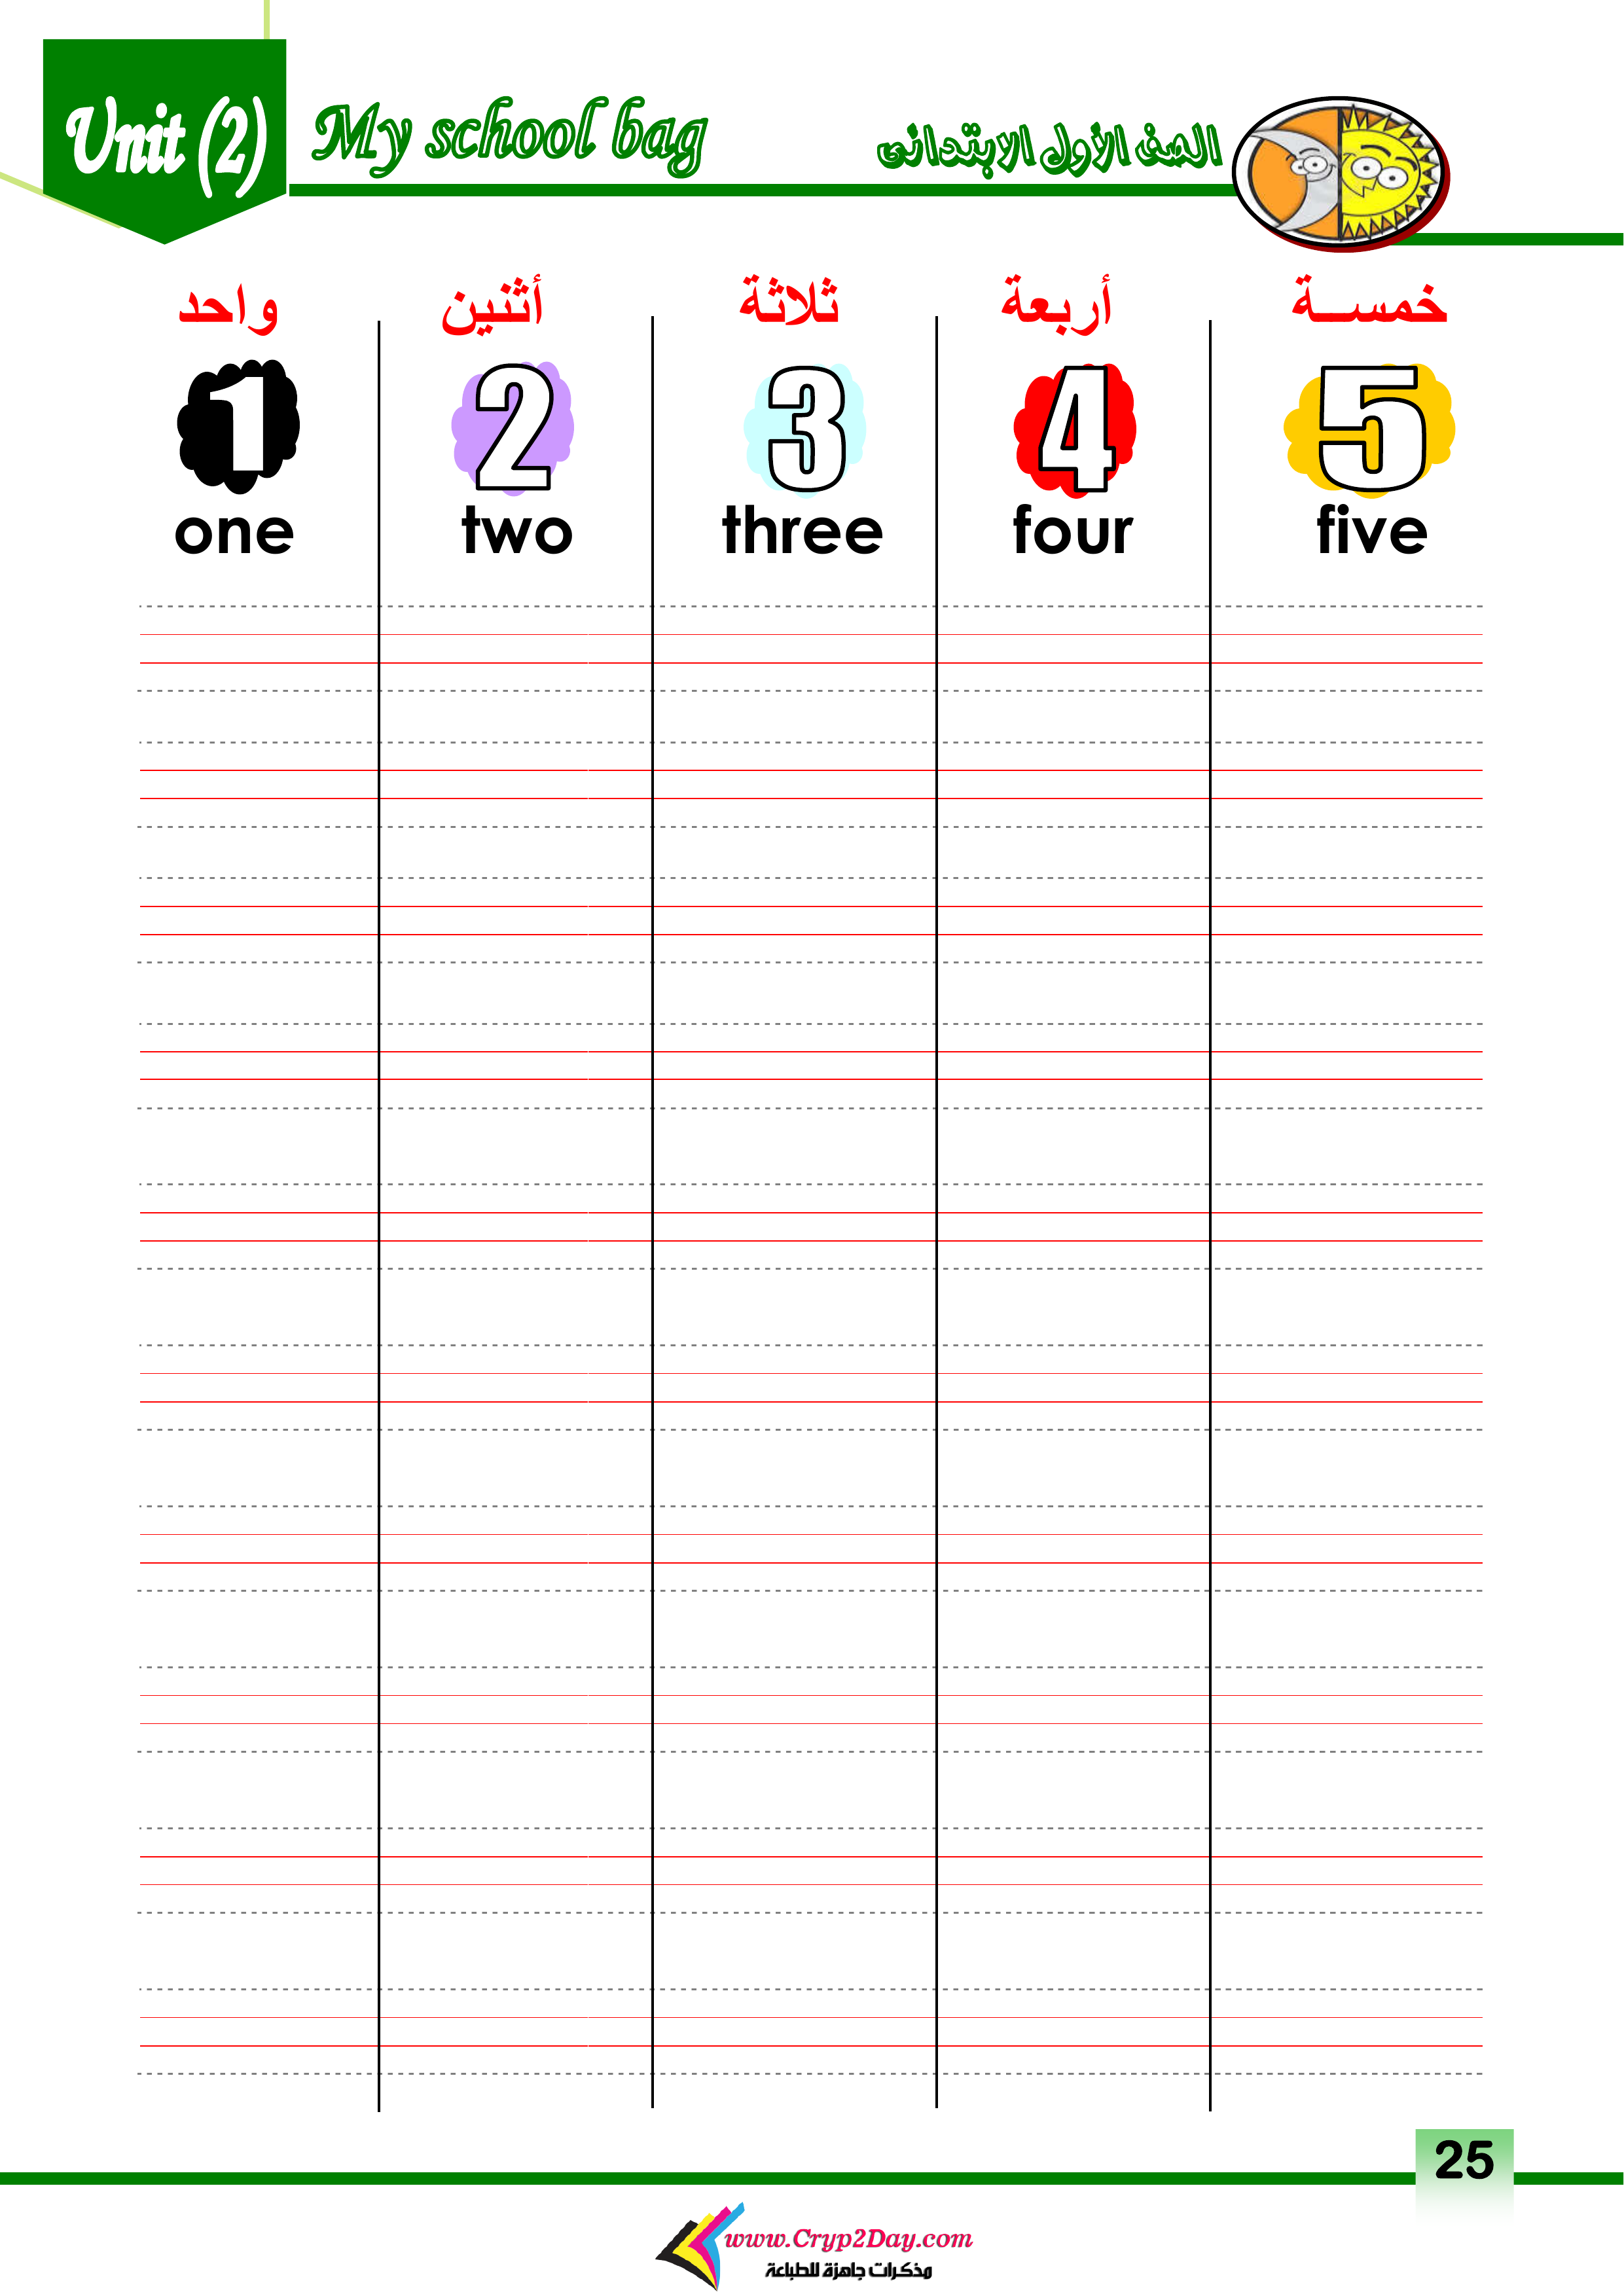 Unit (2) My school bag الصف الأول الابتدائى
واحد أثنين ثلاثة أربعة خمســة
1 2 3 4 5
one two three four five
25
www.Cryp2Day.com
مذكرات جاهزة للطباعة